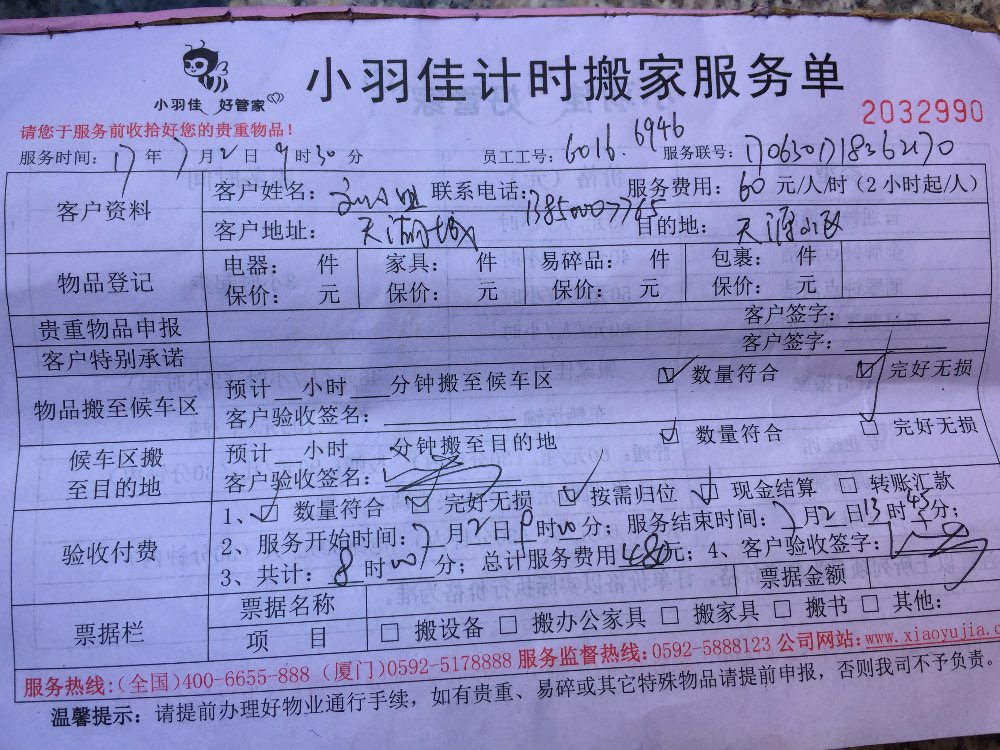 小羽佳计时搬家服务单
小羽佳 好管家
2032990
请您于服务前收拾好您的贵重物品!
服务时间: 17 年 7 月 2 日 9 时 30 分 员工工号: 6016.6946 服务联号: 1706301718362170
客户资料
客户姓名: 联系电话: 服务费用: 60 元/人/时 (2小时起/人)
客户地址: 天湖 目的地: 天源
物品登记
电器: 件 家具: 件 易碎品: 件 包裹: 件
保价: 元 保价: 元 保价: 元 保价: 元
贵重物品申报 客户签字:
客户特别承诺 客户签字:
物品搬至候车区
预计 小时 分钟搬至候车区 ☑ 数量符合 ☑ 完好无损
客户验收签名:
候车区搬至目的地
预计 小时 分钟搬至目的地 ☑ 数量符合 ☑ 完好无损
客户验收签名:
验收付费
1、☑ 数量符合 ☑ 完好无损 ☑ 按需归位 ☑ 现金结算 □ 转账汇款
2、服务开始时间: 7 月 2 日 9 时 00 分; 服务结束时间: 7 月 2 日 13 时 45 分;
3、共计: 8 时 00 分; 总计服务费用 480 元; 4、客户验收签字:
票据栏
票据名称 票据金额
项 目 □ 搬设备 □ 搬办公家具 □ 搬家具 □ 搬书 □ 其他:
服务热线:(全国)400-6655-888 (厦门)0592-5178888 服务监督热线:0592-5888123 公司网站:www.xiaoyujia.c
温馨提示: 请提前办理好物业通行手续, 如有贵重、易碎或其它特殊物品请提前申报, 否则我司不予负责。